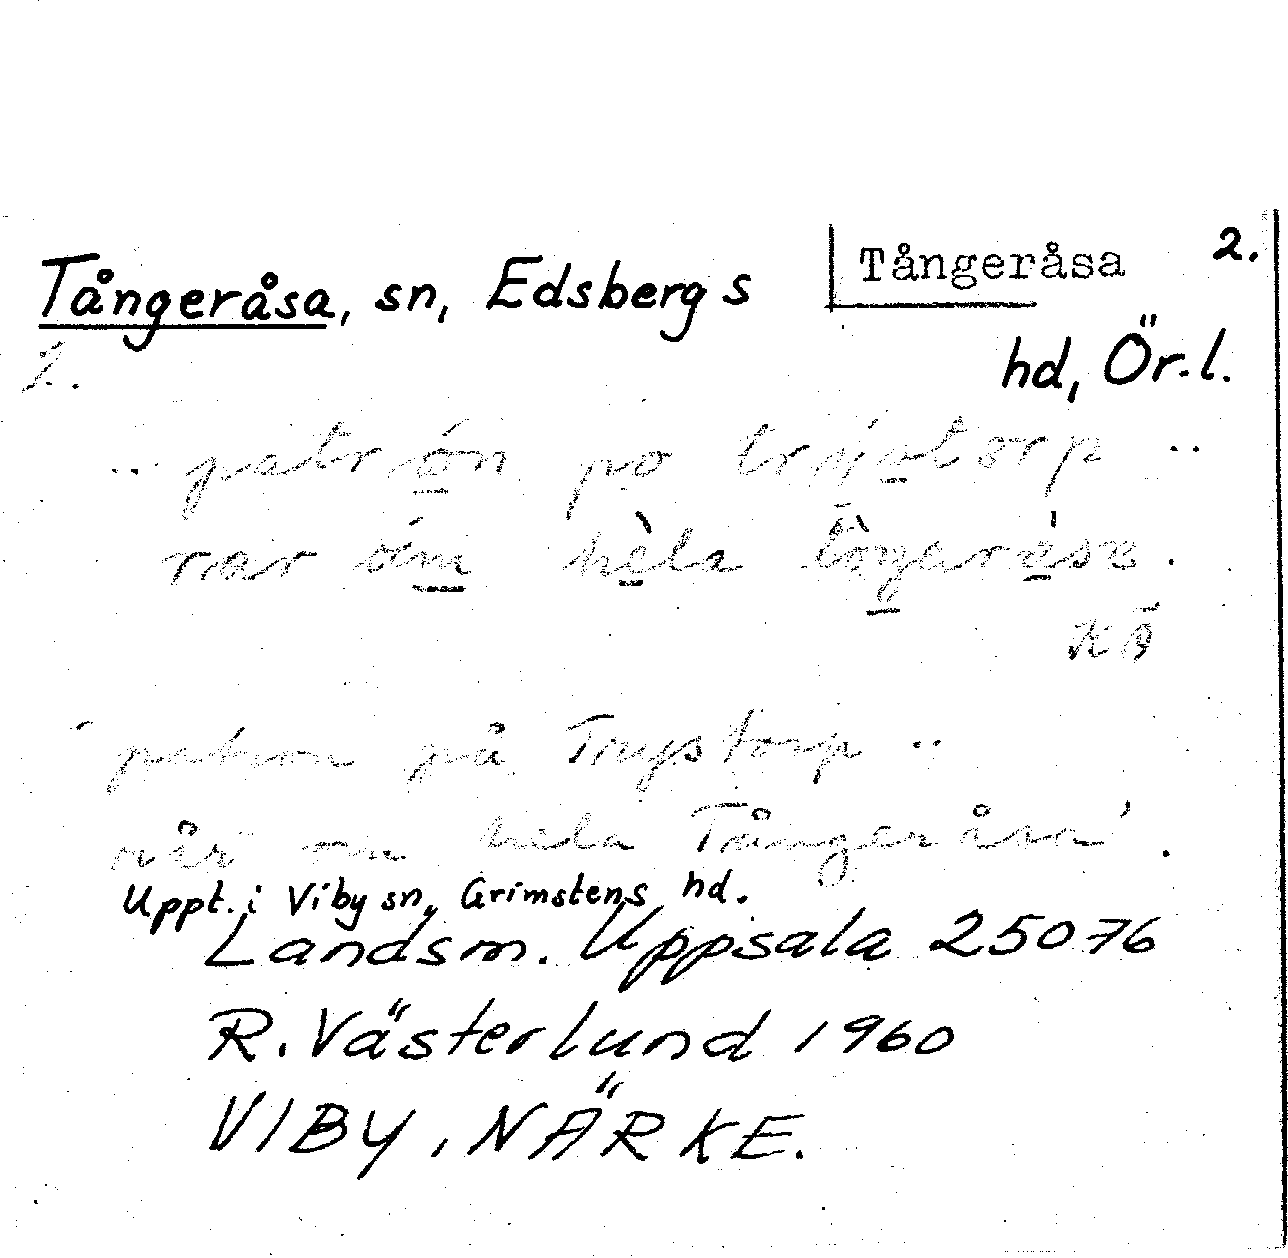 Tångeråsa, sn, Edsbergs
Tångeråsa 2.
hd, Ör.l.
2.
.. patrón po trýstorp ..
rar óm hèla
KÅ
´patron på Trystorp ..
rår om hela Tångeråsa´.
Uppt. i Viby sn, Grimstens hd.
Landsm. Uppsala 25076
R. Västerlund 1960
VIBY, NÄRKE.